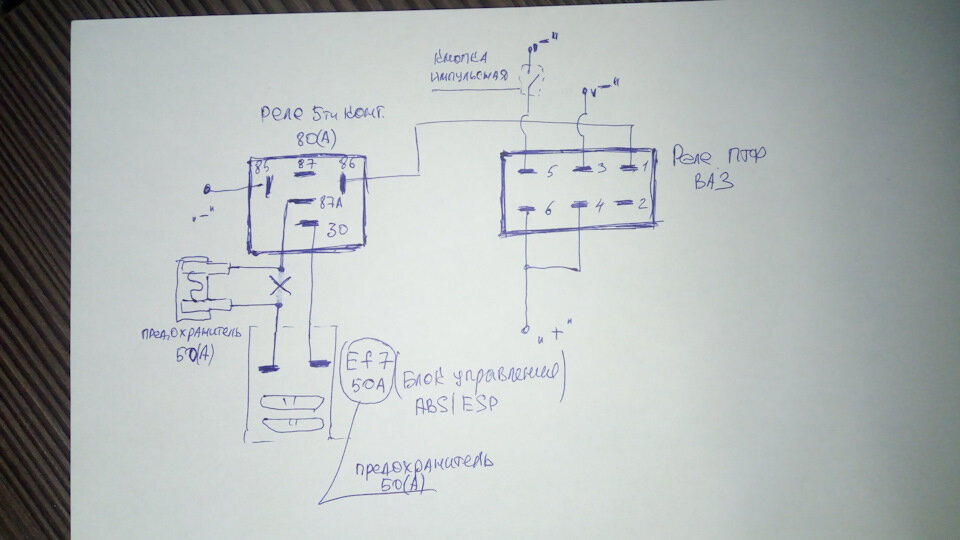 КНОПКА
ИМПУЛЬСНАЯ
"-"
"-"
Реле 5ти конт.
80(А)
85 87 86
87А
30
"-"
5 3 1
6 4 2
Реле ПТФ
ВАЗ
"+"
ПРЕДОХРАНИТЕЛЬ
50(А)
Ef7
50A
(Блок управления)
ABS/ESP
ПРЕДОХРАНИТЕЛЬ
50(А)